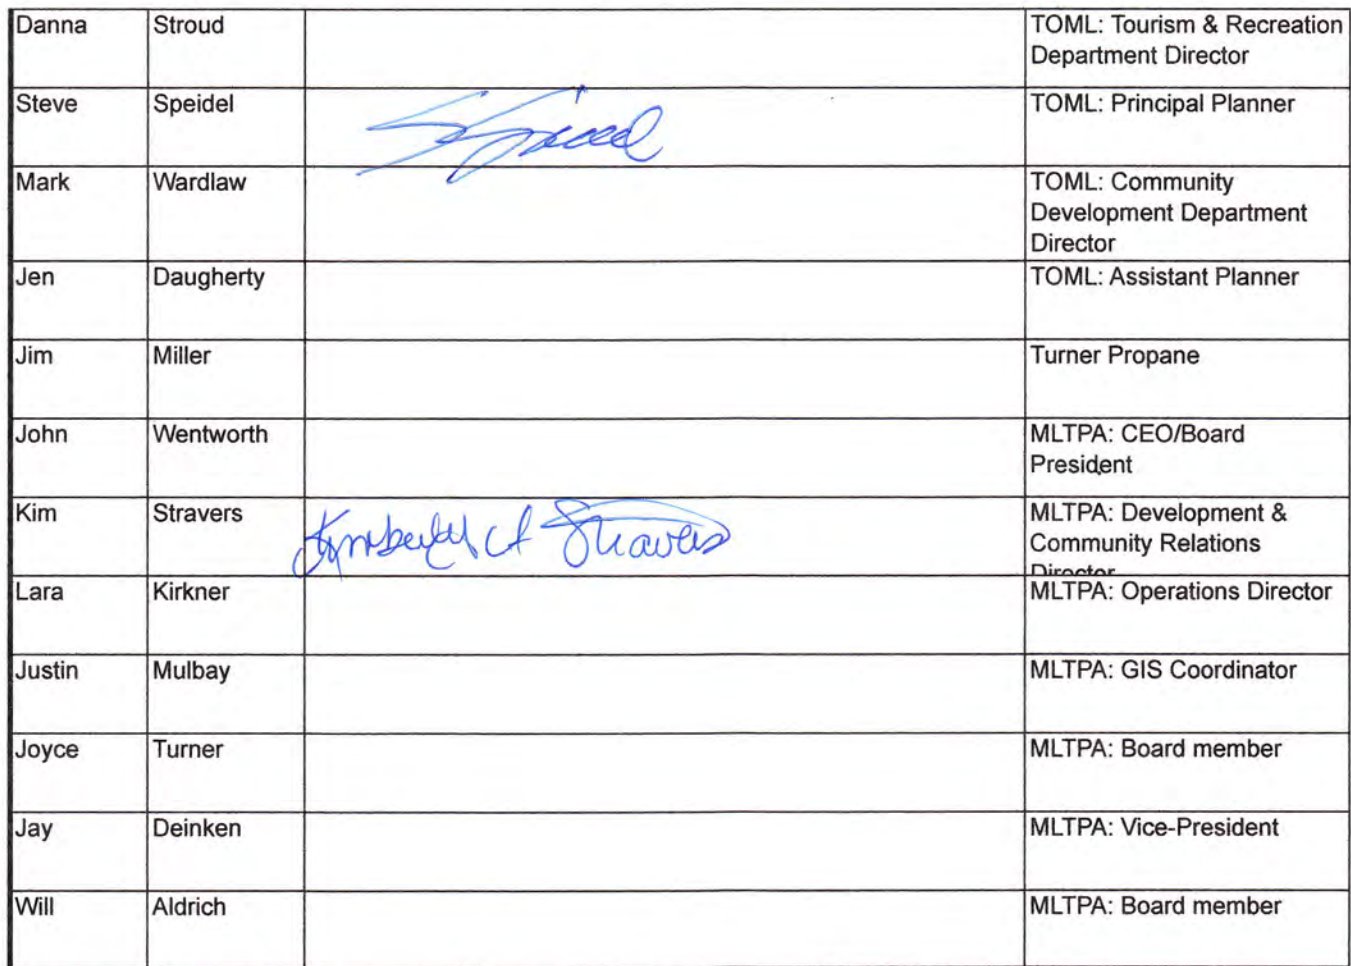 Danna Stroud TOML: Tourism & Recreation
Department Director
Steve Speidel S Speidel TOML: Principal Planner
Mark Wardlaw TOML: Community
Development Department
Director
Jen Daugherty TOML: Assistant Planner
Jim Miller Turner Propane
John Wentworth MLTPA: CEO/Board
President
Kim Stravers Kimberly A Stravers MLTPA: Development &
Community Relations
Director
Lara Kirkner MLTPA: Operations Director
Justin Mulbay MLTPA: GIS Coordinator
Joyce Turner MLTPA: Board member
Jay Deinken MLTPA: Vice-President
Will Aldrich MLTPA: Board member